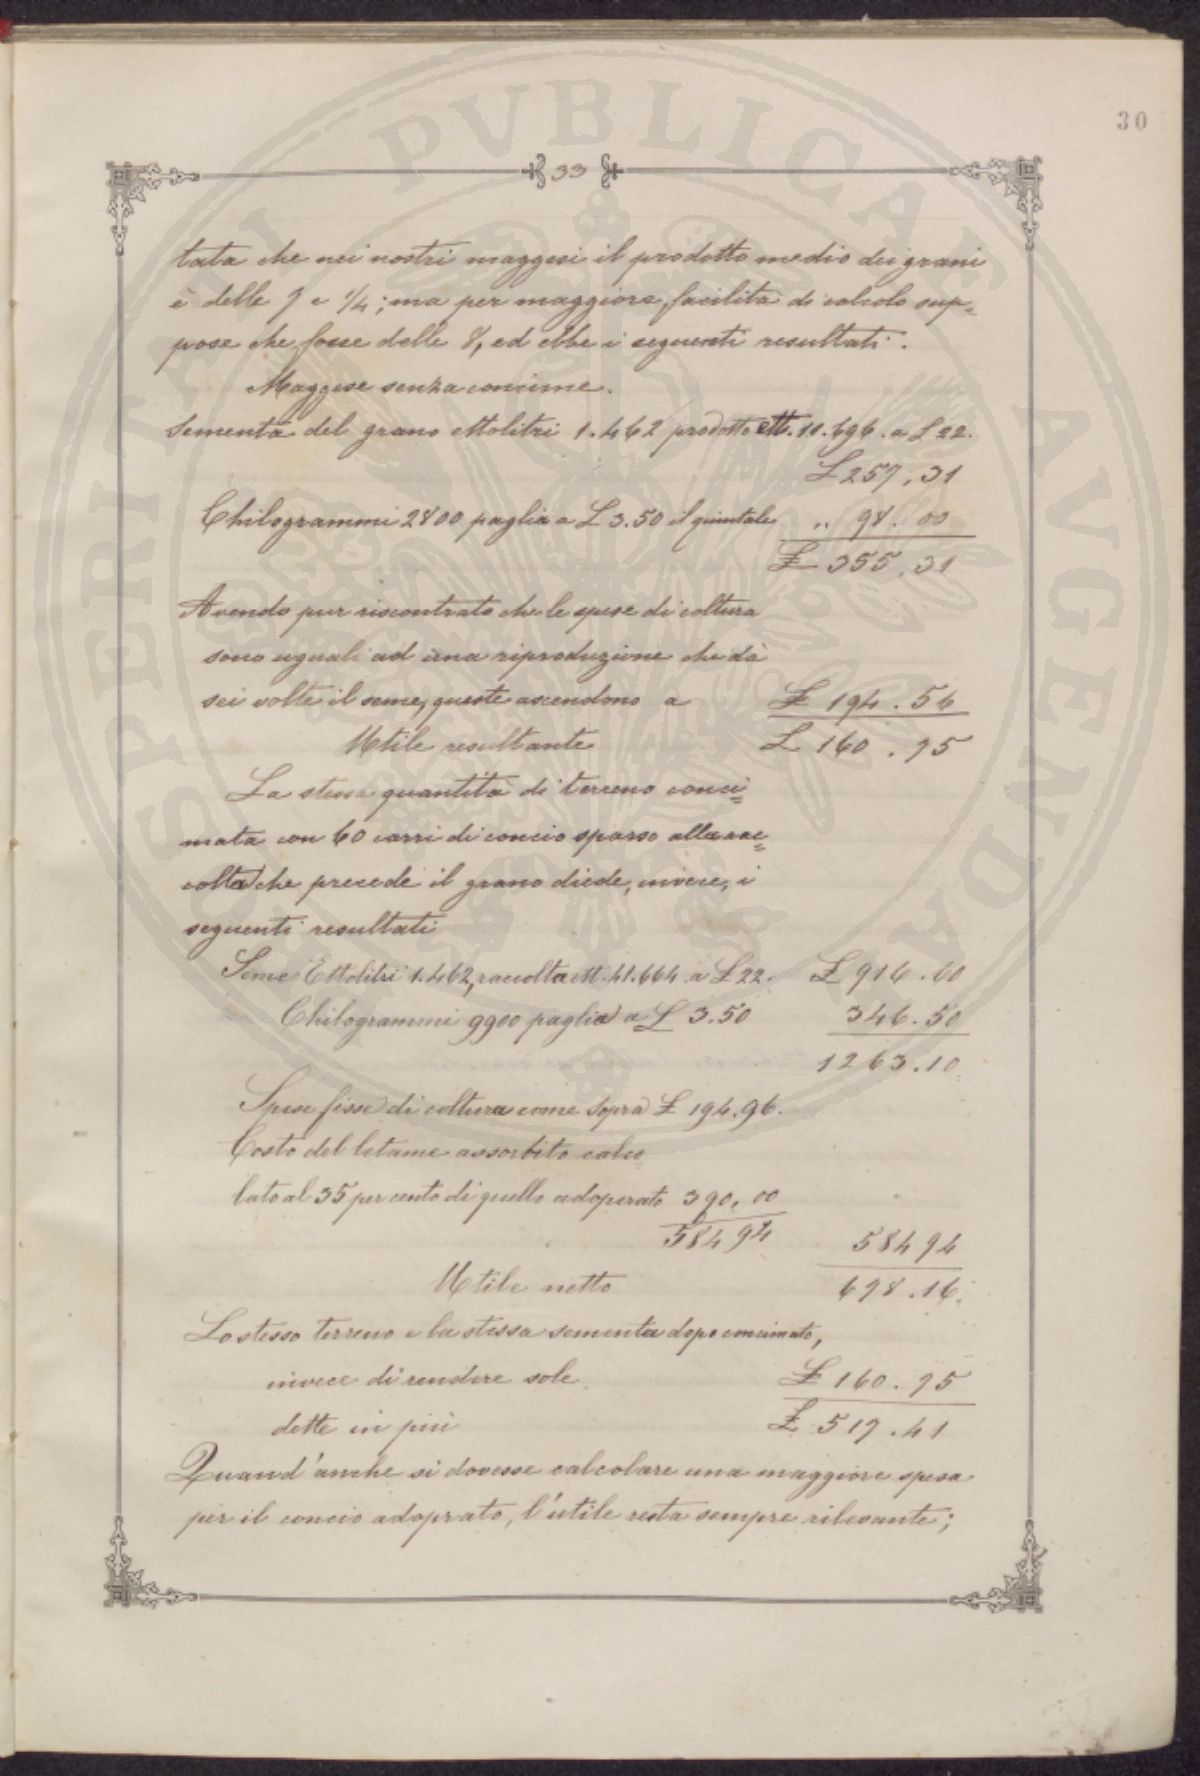 30
33
tata che nei nostri maggesi il prodotto medio dei grani
è delle 7 e 1/4; ma per maggiore facilità di calcolo sup=
pose che fosse delle 8, ed ebbe i seguenti resultati.
Maggese senza concime.
Sementa del grano ettolitri 1.462 prodotto ett. 11.696. a £ 22.
£ 257,31
Chilogrammi 2800 paglia a £ 3.50 il quintale " 98.00
£ 355,31
Avendo pur riscontrato che le spese di coltura
sono uguali ad una riproduzione che dà
sei volte il seme, queste ascendono a £ 194.56
Utile resultante £ 160.75
La stessa quantità di terreno conci=
mata con 60 carri di concio sparso alla rac=
colta che precede il grano diede, invece, i
seguenti resultati
Seme Ettolitri 1.462, raccolta ett. 41.664 a £ 22. £ 916.60
Chilogrammi 9900 paglia a £ 3.50 346.50
1263.10
Spese fisse di coltura come sopra £ 194.96.
Costo del letame assorbito calco
lato al 35 per cento di quello adoperato 390,00
584 94 584 94
Utile netto 678.16.
Lo stesso terreno e la stessa sementa dopo concimato,
invece di rendere sole £ 160.75
dette in più £ 517.41
Quand'anche si dovesse calcolare una maggiore spesa
per il concio adoprato, l'utile resta sempre rilevante;
PUBLICAE
AUGENDAE